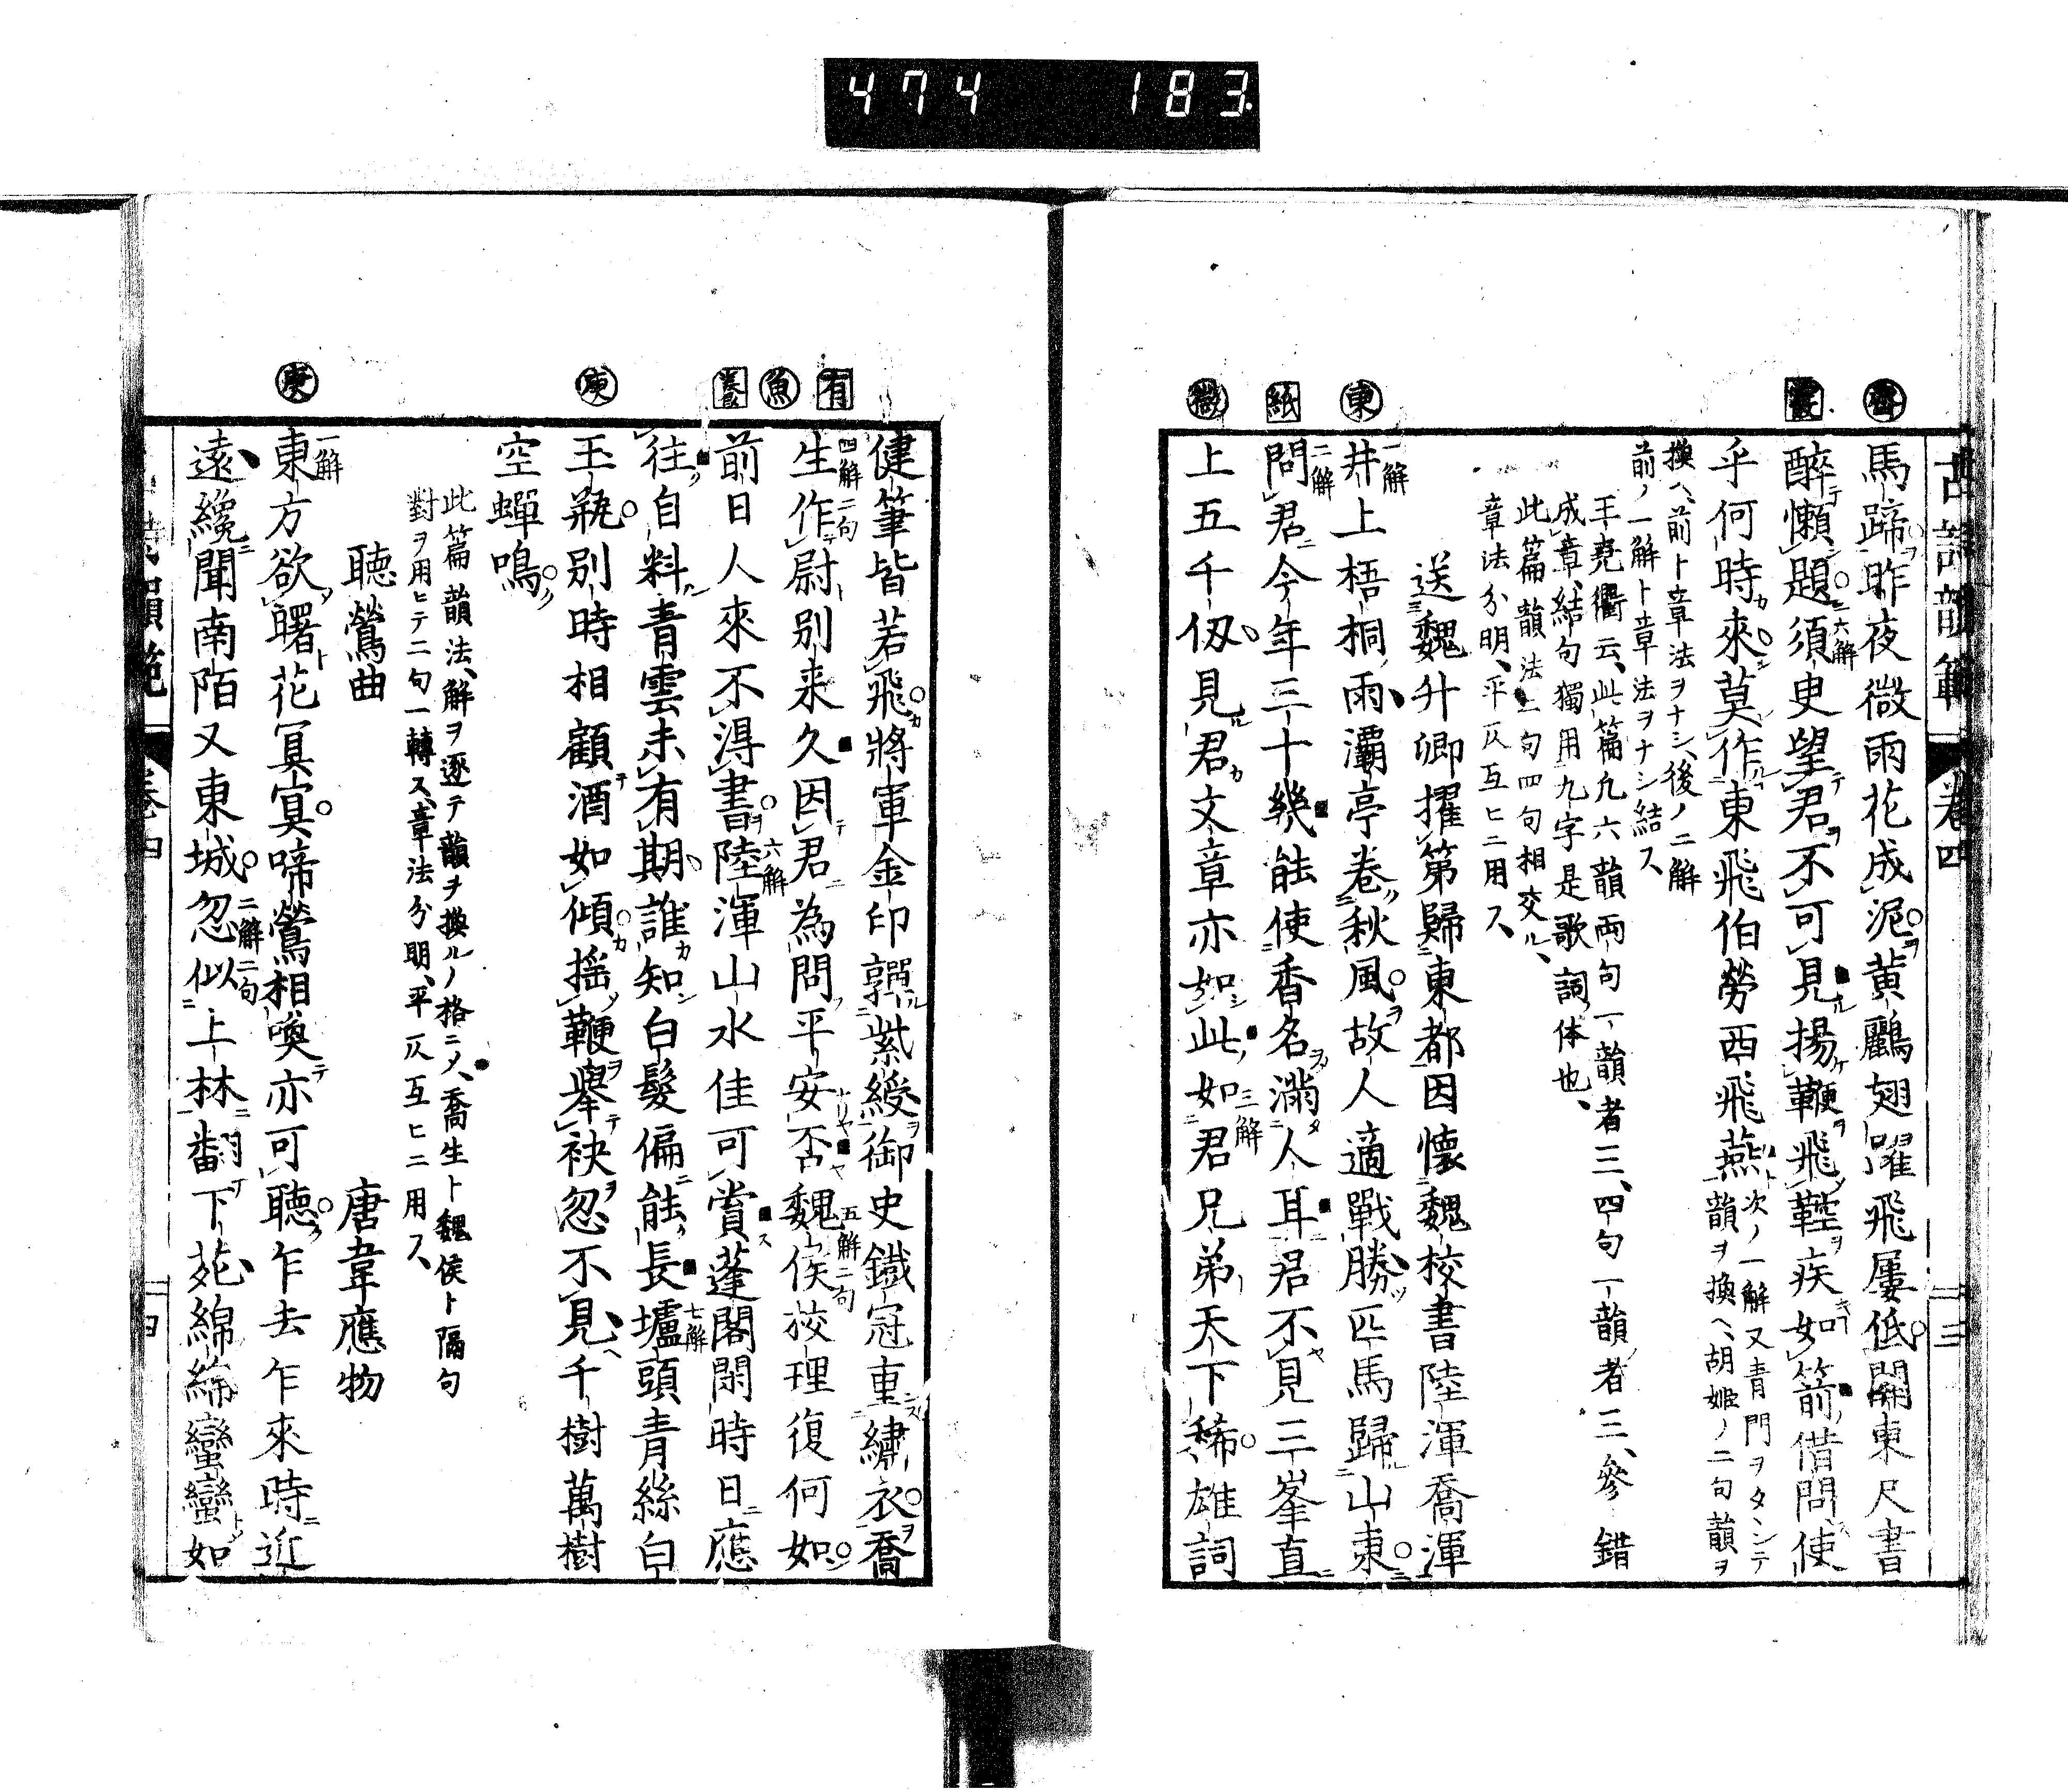 474 183
古詩韻範 卷四
齊
霰
東
紙
微
馬蹄昨夜微雨花成泥黄鸝翅躍飛屢低關東尺書
醉懶題須臾望君不可見揚鞭飛鞚疾如箭借問使
乎何時來莫作東飛伯勞西飛燕
次ノ一解又青門ヲタヽンテ
韻ヲ換へ、胡姫ノ二句韻ヲ
換へ、前ト章法ヲナシ、後ノ二解
前ノ一解ト章法ヲナシ結ス
王堯衢云、此篇凢六韻両句一韻者三、四句一韻者三、參錯
成章、結句獨用九字是歌詞体也、
此篇韻法二句四句相交ル、
章法分明、平仄互ヒニ用ス、
送魏升卿擢第歸東都因懷魏校書陸渾喬渾
一解
井上梧桐雨灞亭卷秋風故人適戰勝匹馬歸山東
二解
問君今年三十幾能使香名滿人耳君不見三峯直
上五千仭見君文章亦如此如君兄弟天下稀雄詞
三解
有
魚
養
庚
庚
健筆皆若飛將軍金印嚲紫綬御史鐵冠重繡衣喬
四解二句
生作尉別来久因君為問平安否魏侯挍理復何如
五解二句
前日人來不得書陸渾山水佳可賞蓬閣閑時日應
六解
往自料青雲未有期誰知白髮偏能長壚頭青絲白
七解
玉瓶別時相顧酒如傾揺鞭舉袂忽不見千樹萬樹
空蟬鳴
此篇韻法、解ヲ逐テ韻ヲ換ルノ格ニメ、喬生ト魏侯ト隔句
對ヲ用ヒテ二句一轉ス、章法分明、平仄互ヒニ用ス、
聽鶯曲 唐韋應物
一解
東方欲曙花冥冥啼鶯相喚亦可聽乍去乍來時近
遠纔聞南陌又東城忽似上林翻下苑綿綿蠻蠻如
二解二句